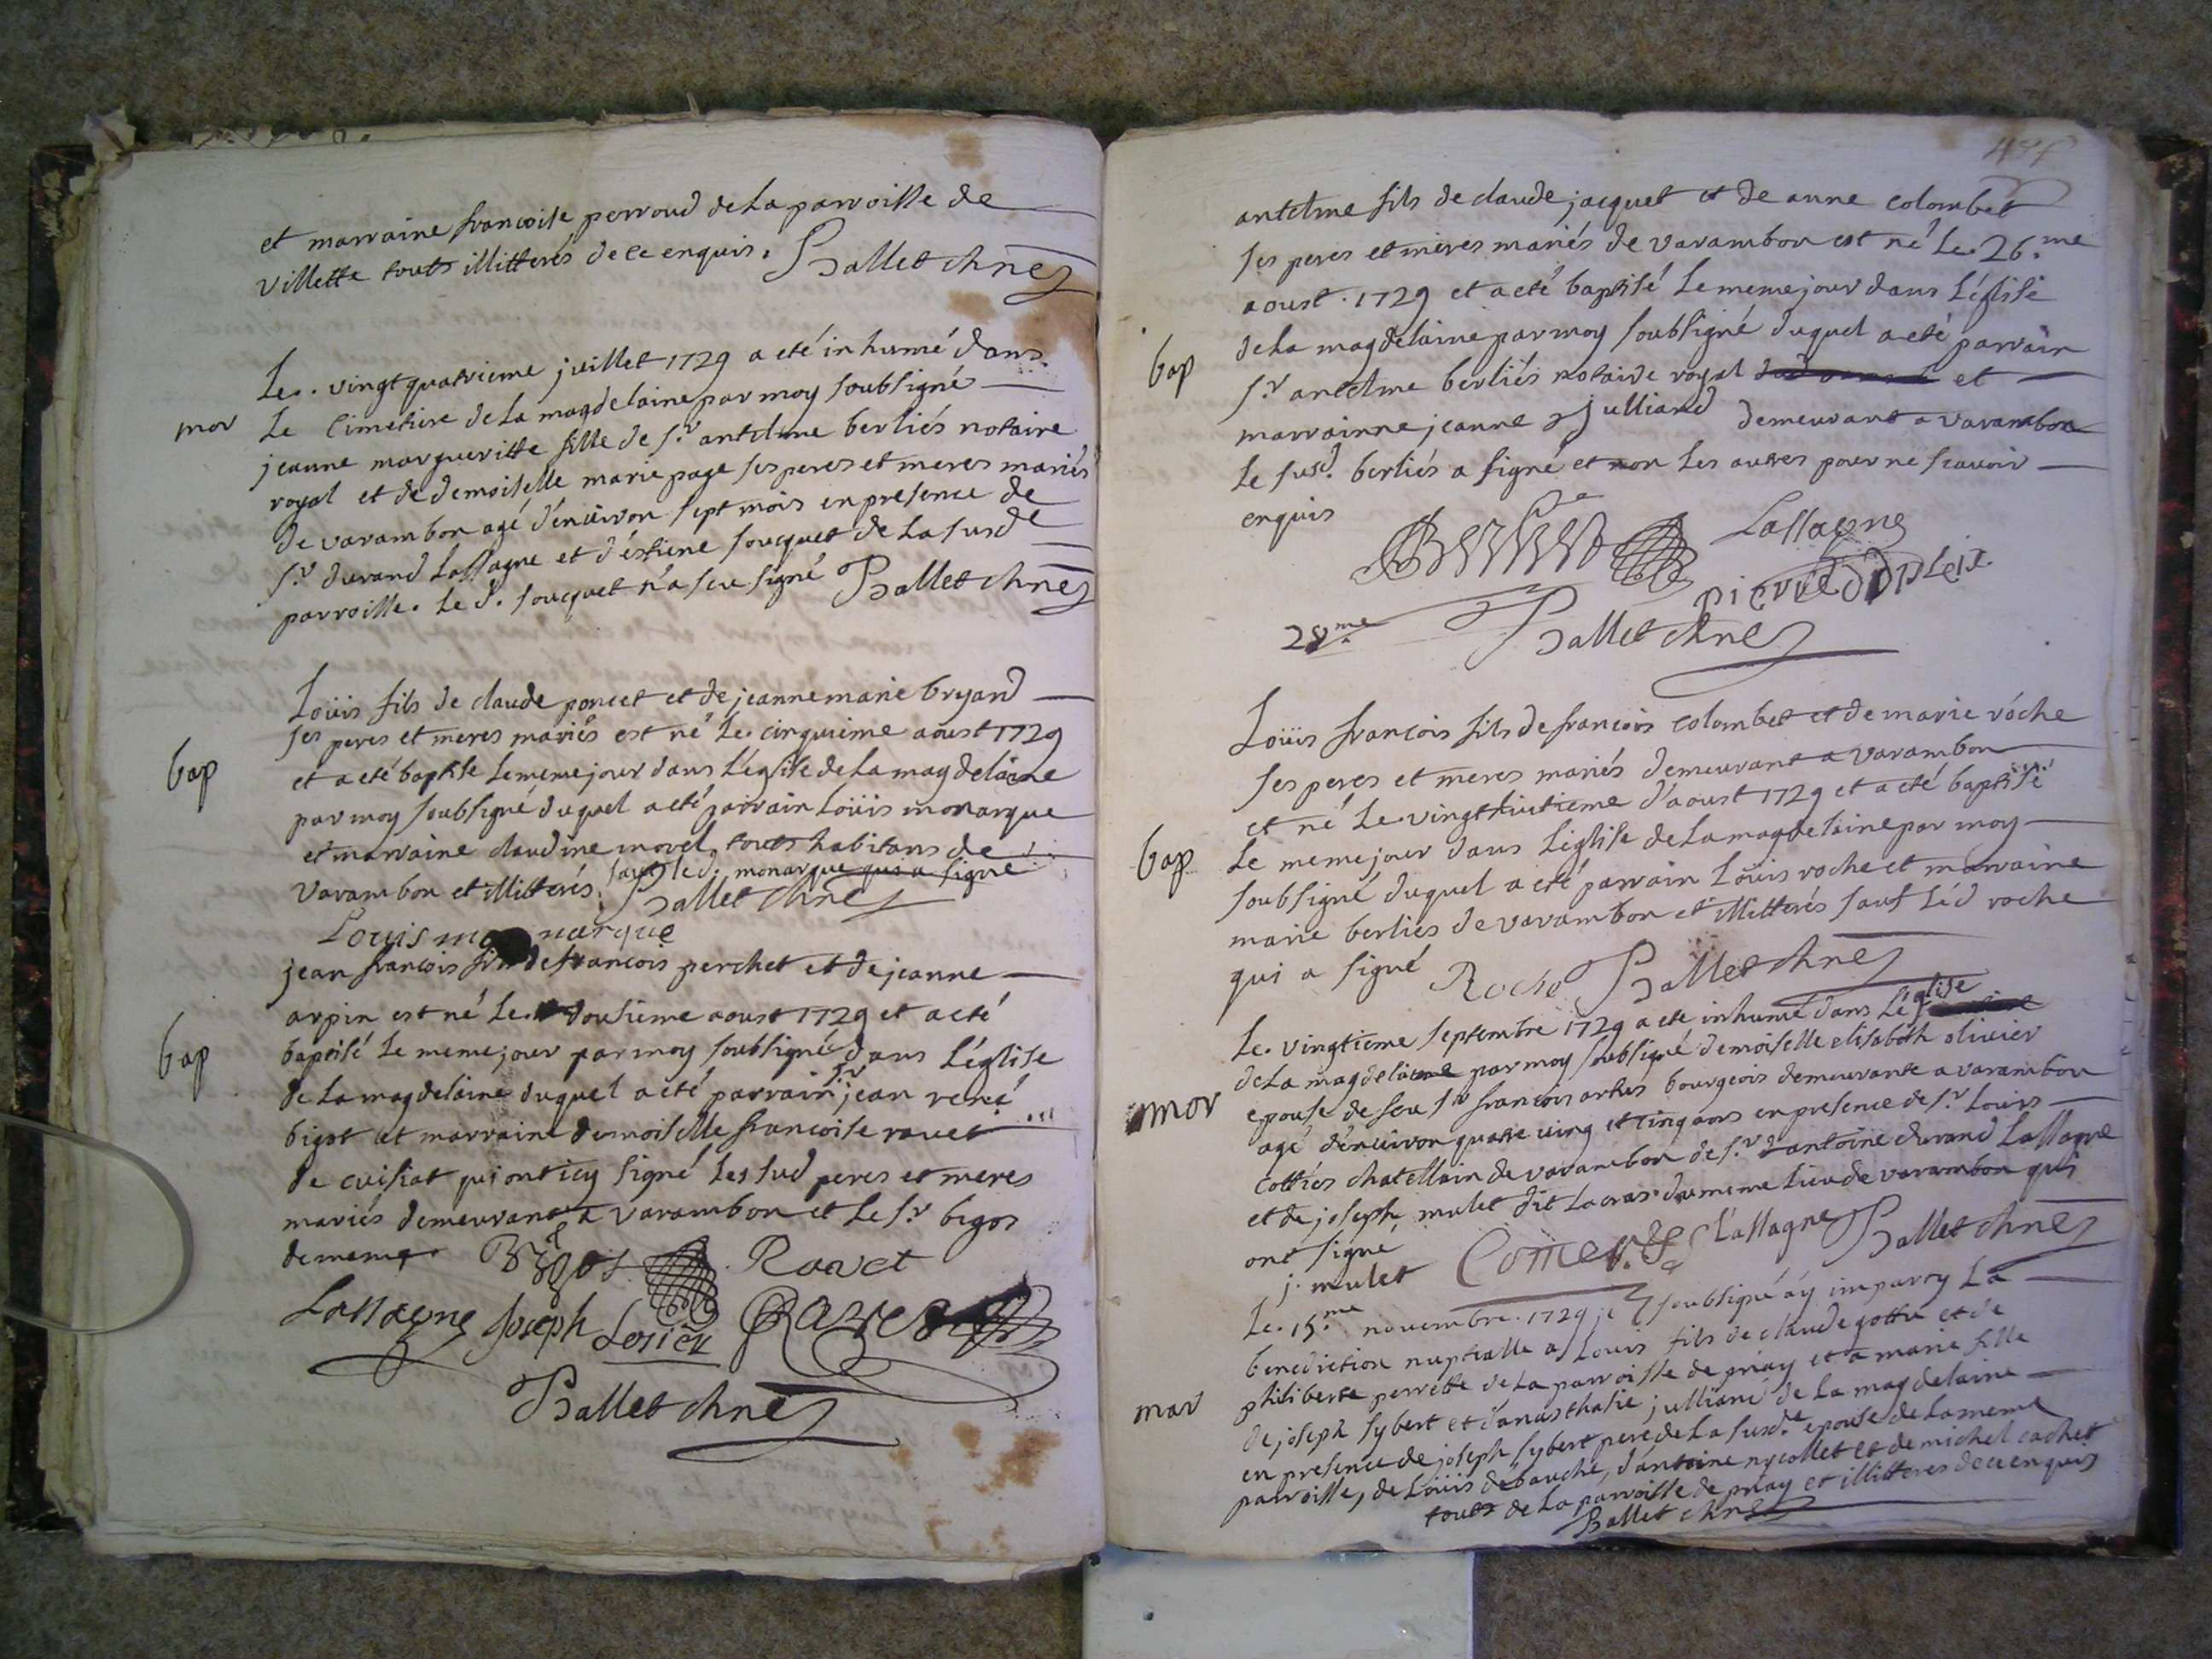 et marraine francoise perroud de La parroisse de
villette touts illitterés de ce enquis. Ballet chne
Le. vingt quatrieme juillet 1729 a eté inhumé dans
mor
Le Cimetiere de La magdelaine par moy soubsigné
jeanne margueritte fille de sr. antelme berliés notaire
royal et de demoiselle marie page ses peres et meres mariés
de varambon agé d'environ sept mois en presence de
sr. durand Lassagne et d'éstiene soucquet de La susde
parroisse. Le d. soucquet n'a sceu signé Ballet chne
Loüis fils de claude poncet et de jeanne marie bryand
ses peres et meres mariés est né Le. cinquieme aoust 1729
bap
et a eté baptise Le meme jour dans L'église de La magdelaine
par moy soubsigné duquel a eté parrain Loüis monarque
et marraine claudine morel, touts habitans de
varambon et illitterés, sauf le d. monarque qui a signé
Ballet chne
Louis monarque
jean francois fils de francois perchet et de jeanne
arpin est né Le. dousieme aoust 1729 et a eté
bap
baptisé Le meme jour par moy soubsigné dans L'église
de La magdelaine duquel a eté parrain sr jean rené
bigot et marraine demoiselle francoise ravet
de cuisiat qui ont icy signé Les sud peres et meres
mariés demeurant a varambon et Le sr. bigot
de meme Bigot Ravet
Lassagne Joseph Ravet
Ballet chne
antelme fils de claude jacquet et de anne colombet
ses peres et meres mariés de varambon est né Le. 26.me
aoust. 1729 et a eté baptisé Le meme jour dans L'église
bap
de La magdelaine par moy soubsigné duquel a eté parrain
sr. antelme berliés notaire royal et
marrainne jeanne julliand demeurant a varambon
Le susd. berliés a signé et non Les autres pour ne scavoir
enquis
Lassagne
pierre dupleix
28me Ballet chne
Loüis francois fils de francois colombet et de marie róche
ses peres et meres mariés demeurant a varambon
et né Le. vingthuitieme d'aoust 1729 et a eté baptisé
bap
Le meme jour dans L'église de La magdelaine par moy
soubsigné duquel a eté parrain Loüis roche et marraine
marie berliés de varambon et illitterés sauf Léd roche
qui a signé Roche Ballet chne
Le. vingtieme septembre 1729 a eté inhumé dans L'église
de La magdelaine par moy soubsigné demoiselle elisabeth olivier
mor
epouse de feu sr francois artus bourgeois demeurante a varambon
agé d'environ quatre ving et cinq ans en presence de sr. Louis
cottiés chatellain de varambon de sr. antoine durand Lassagne
et de joseph mulet dit Lacras du meme Lieu de varambon qui
ont signé Lassagne Ballet chne
j. mulet
Le. 15.me novembre. 1729 je soubsigné aÿ imparty La
benediction nuptialle a Louis fils de claude gottu et de
mar
philiberte perrette de La parroisse de priay et a marie fille
de joseph sybert et d'anasthasie julliane de La magdelaine
en presence de joseph sybert pere de La susd.e epouse de La meme
parroisse, de Loüis debauche, d'antoine nycollet et de michel cachet
touts de La parroisse de priay et illitteres de ce enquis
Ballet chne